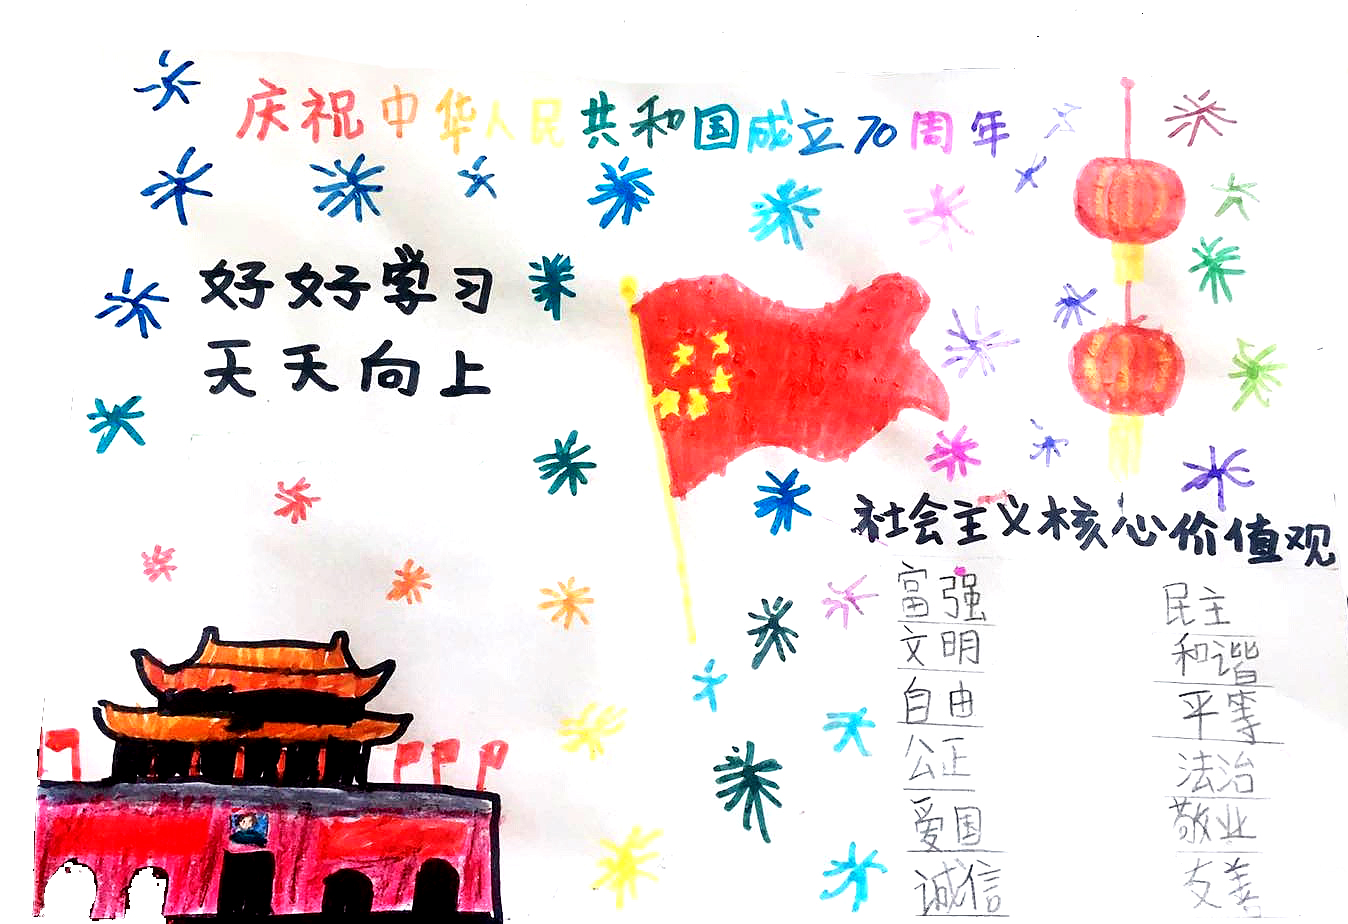 庆祝中华人民共和国成立70周年
好好学习
天天向上
社会主义核心价值观
富强 民主
文明 和谐
自由 平等
公正 法治
爱国 敬业
诚信 友善